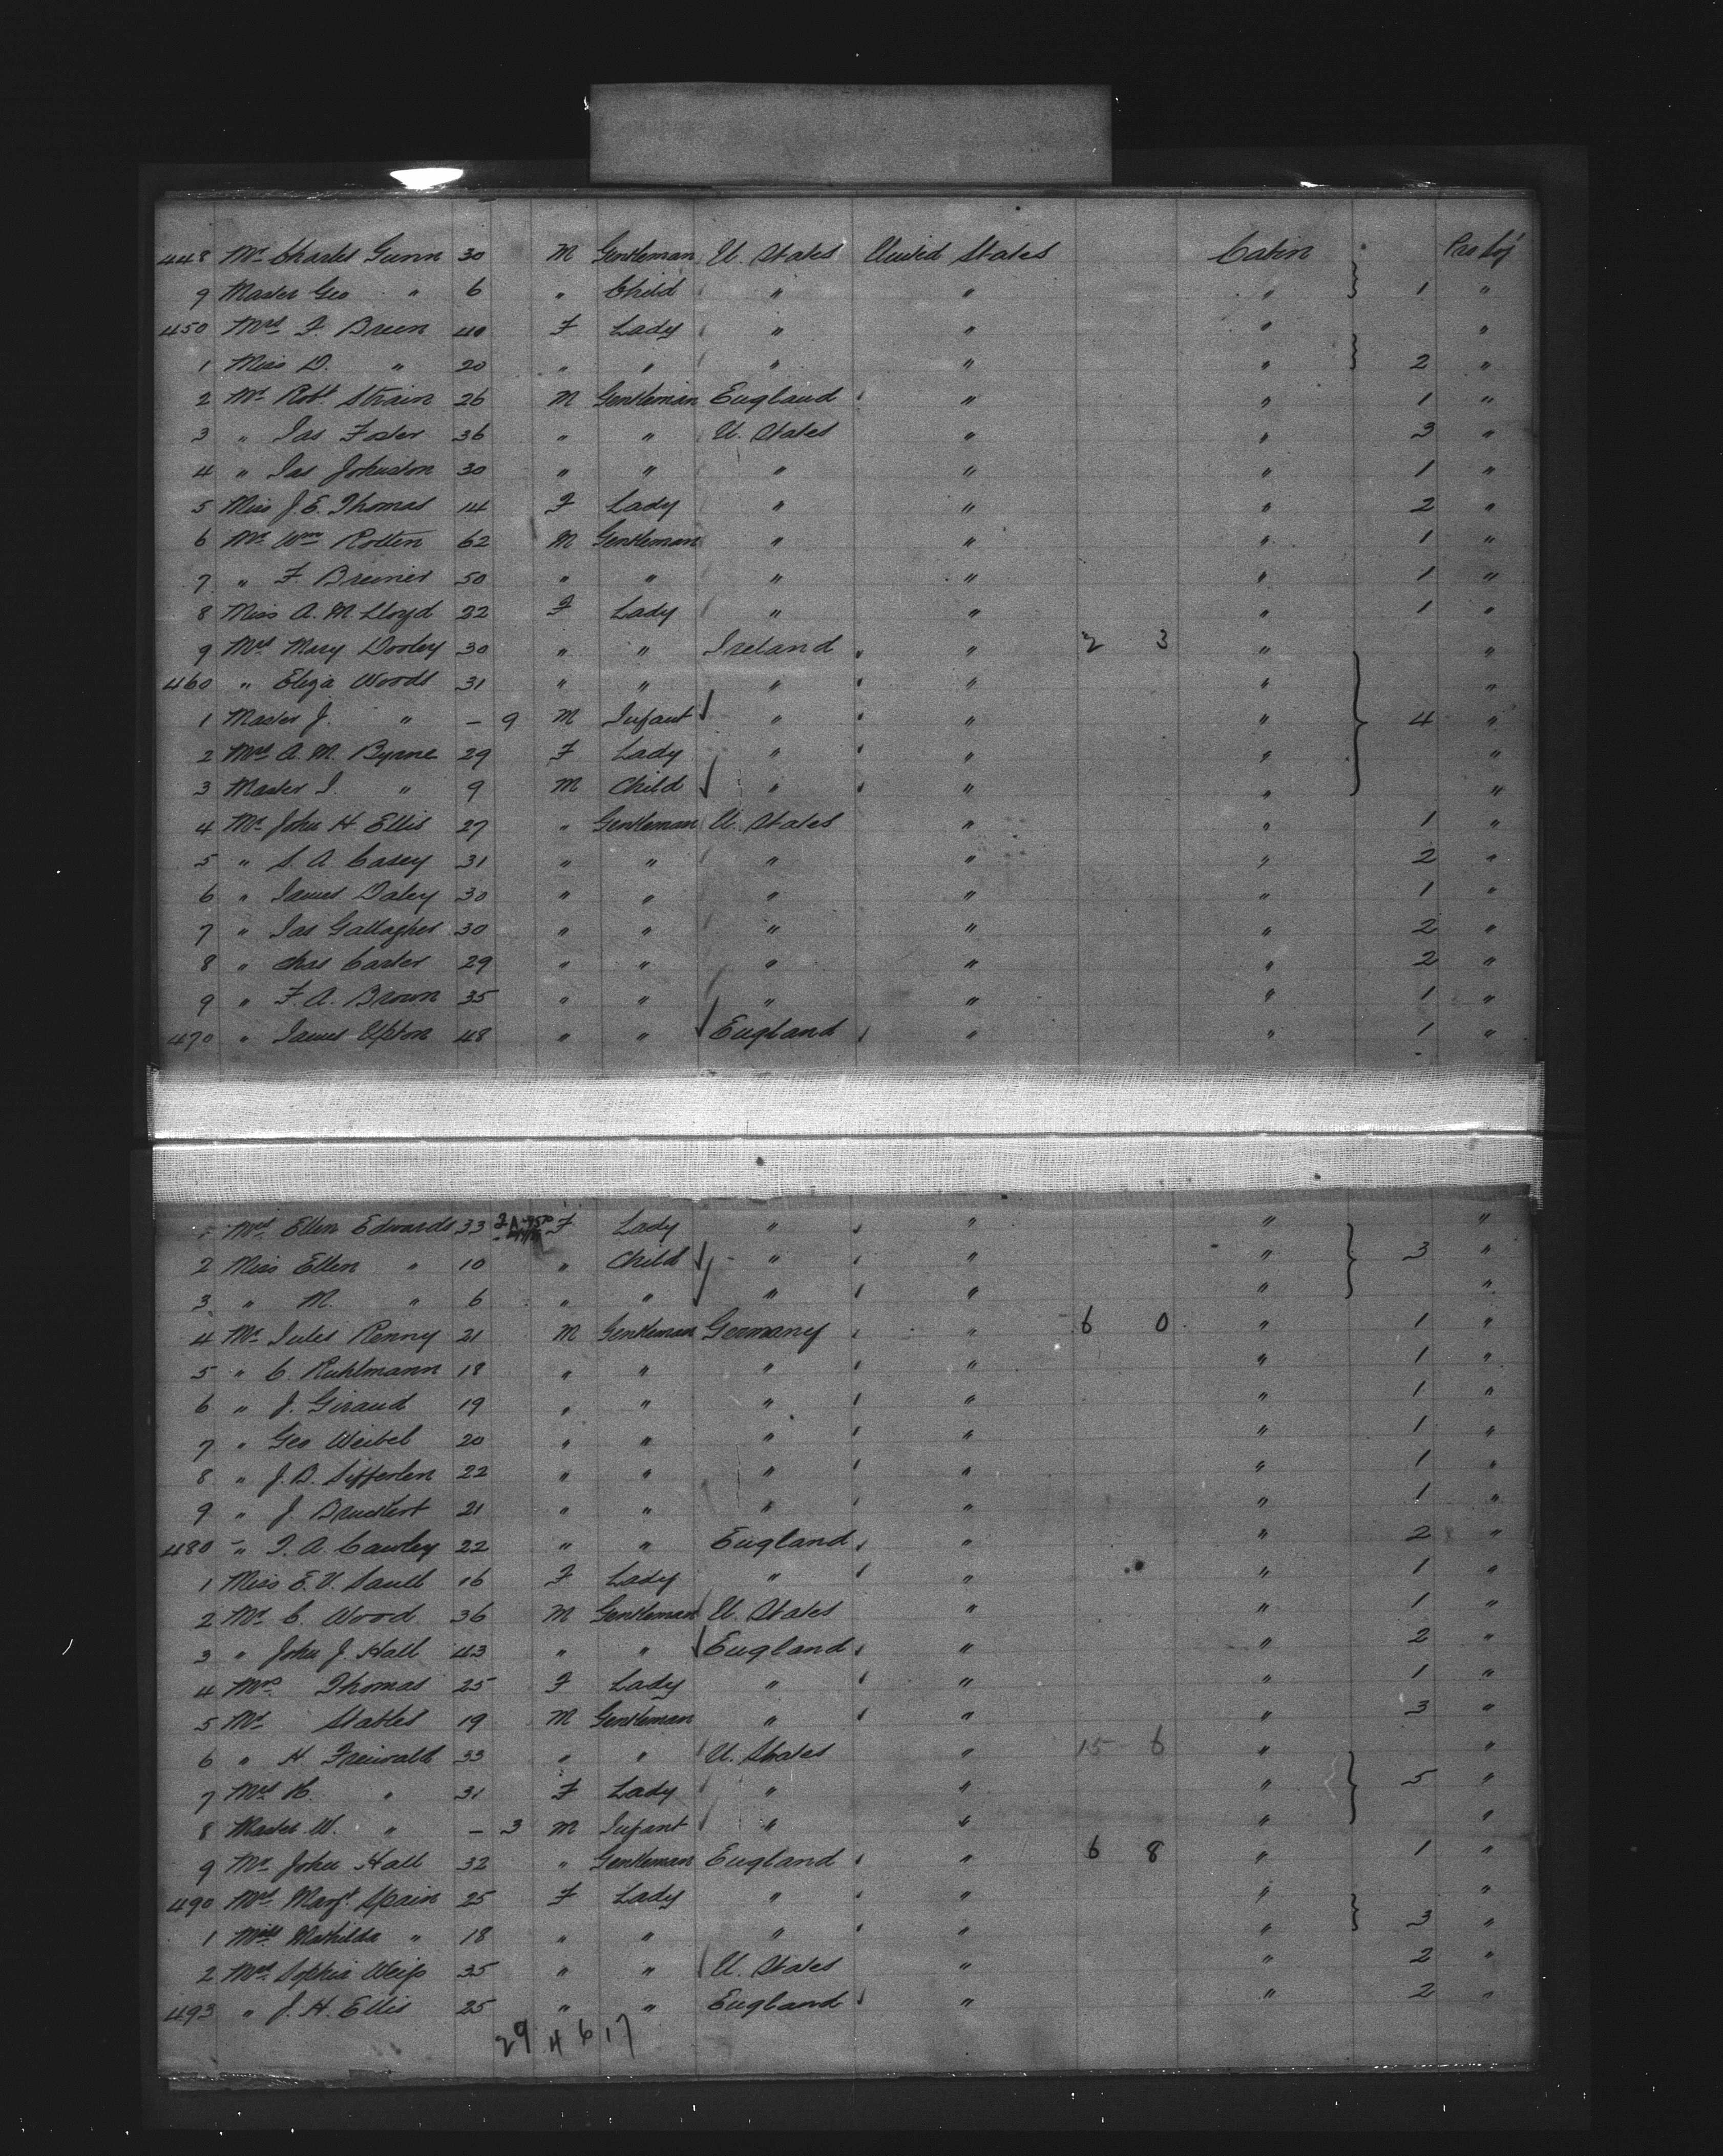 448 Mr. Charles Gunn 30 M Gentleman U. States United States Cabin
9 Master Geo " 6 " Child " " " 1 "
450 Mrs. F. Breen 40 F Lady " " " "
1 Miss D. " 20 " " " " " 2 "
2 Mr. Robt. Strain 26 M Gentleman England " " 1 "
3 " Jas Foster 36 " " U. States " " 3 "
4 " Jas Johnston 30 " " " " " 1 "
5 Miss J. E. Thomas 14 F Lady " " " 2 "
6 Mr. Wm Rotten 62 M Gentleman " " " 1 "
7 " F. Breiner 50 " " " " " 1 "
8 Miss A. M. Lloyd 22 F Lady " " " 1 "
9 Mrs. Mary Dooley 30 " " Ireland " 2 3 " "
460 " Eliza Woods 31 " " " " " "
1 Master J. " – 9 M Infant " " " 4 "
2 Mrs. A. M. Byrne 29 F Lady " " " "
3 Master J. " 9 M Child " " " "
4 Mr. John H Ellis 27 " Gentleman U. States " " 1 "
5 " S. A. Casey 31 " " " " " 2 "
6 " James Daley 30 " " " " " 1 "
7 " Jas Gallagher 30 " " " " " 2 "
8 " Chas Carter 29 " " " " " 2 "
9 " F. A. Brown 35 " " " " " 1 "
470 " James Upton 48 " " England " " 1 "
Mrs. Ellen Edwards 33 F Lady " " " "
2 Miss Ellen " 10 " Child " " " 3 "
3 " M. " 6 " " " " " "
4 Mr. Jules Renny 21 M Gentleman Germany " 6 0 " 1 "
5 " C. Ruhlmann 18 " " " " " 1 "
6 " J. Giraud 19 " " " " " 1 "
7 " Geo Weibel 20 " " " " " 1 "
8 " J. B. Sifferlen 22 " " " " " 1 "
9 " J. Bruckert 21 " " " " " 1 "
480 " J. A. Cawley 22 " " England " " 2 "
1 Miss E. V. Saull 16 F Lady " " " 1 "
2 Mr. C. Wood 36 M Gentleman U. States " " 1 "
3 " John J. Hall 43 " " England " " 2 "
4 Mrs. Thomas 25 F Lady " " " 1 "
5 Mr. Stables 19 M Gentleman " " " 3 "
6 " H Freiwald 33 " " U. States " 15 6 " "
7 Mrs. K. " 31 F Lady " " " 5 "
8 Master W. " – 3 M Infant " " " "
9 Mr. John Hall 32 " Gentleman England " 6 8 " 1 "
490 Mrs. Margt. Spain 25 F Lady " " " "
1 Miss Mathilda " 18 " " " " " 3 "
2 Mrs. Sophia Weiss 35 " " U. States " " 2 "
493 " J. H. Ellis 25 " " England " " 2 "
29 4 6 17